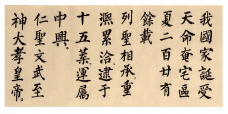 我國家誕受
天命奄宅區
夏二百廿有
餘載
列聖相承重
熙累洽逮于
十五葉運属
中興
仁聖文武至
神大孝皇帝